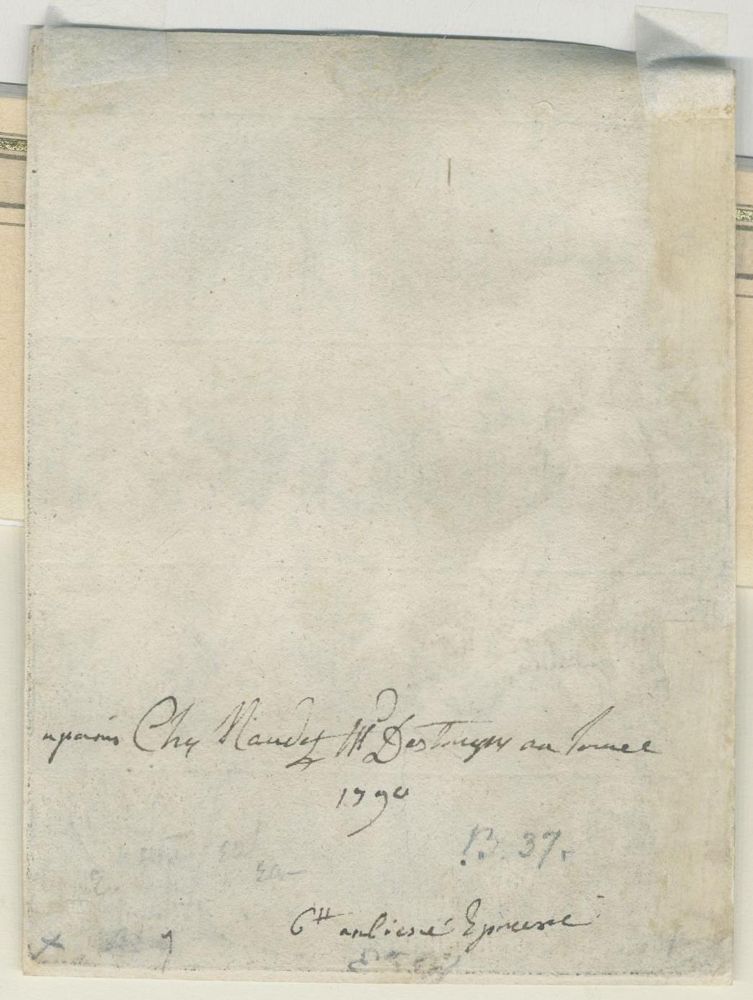 aparis Chez Naudet Md Destampes au Louvre
1790
B. 37.
6tt anciene Epreuve